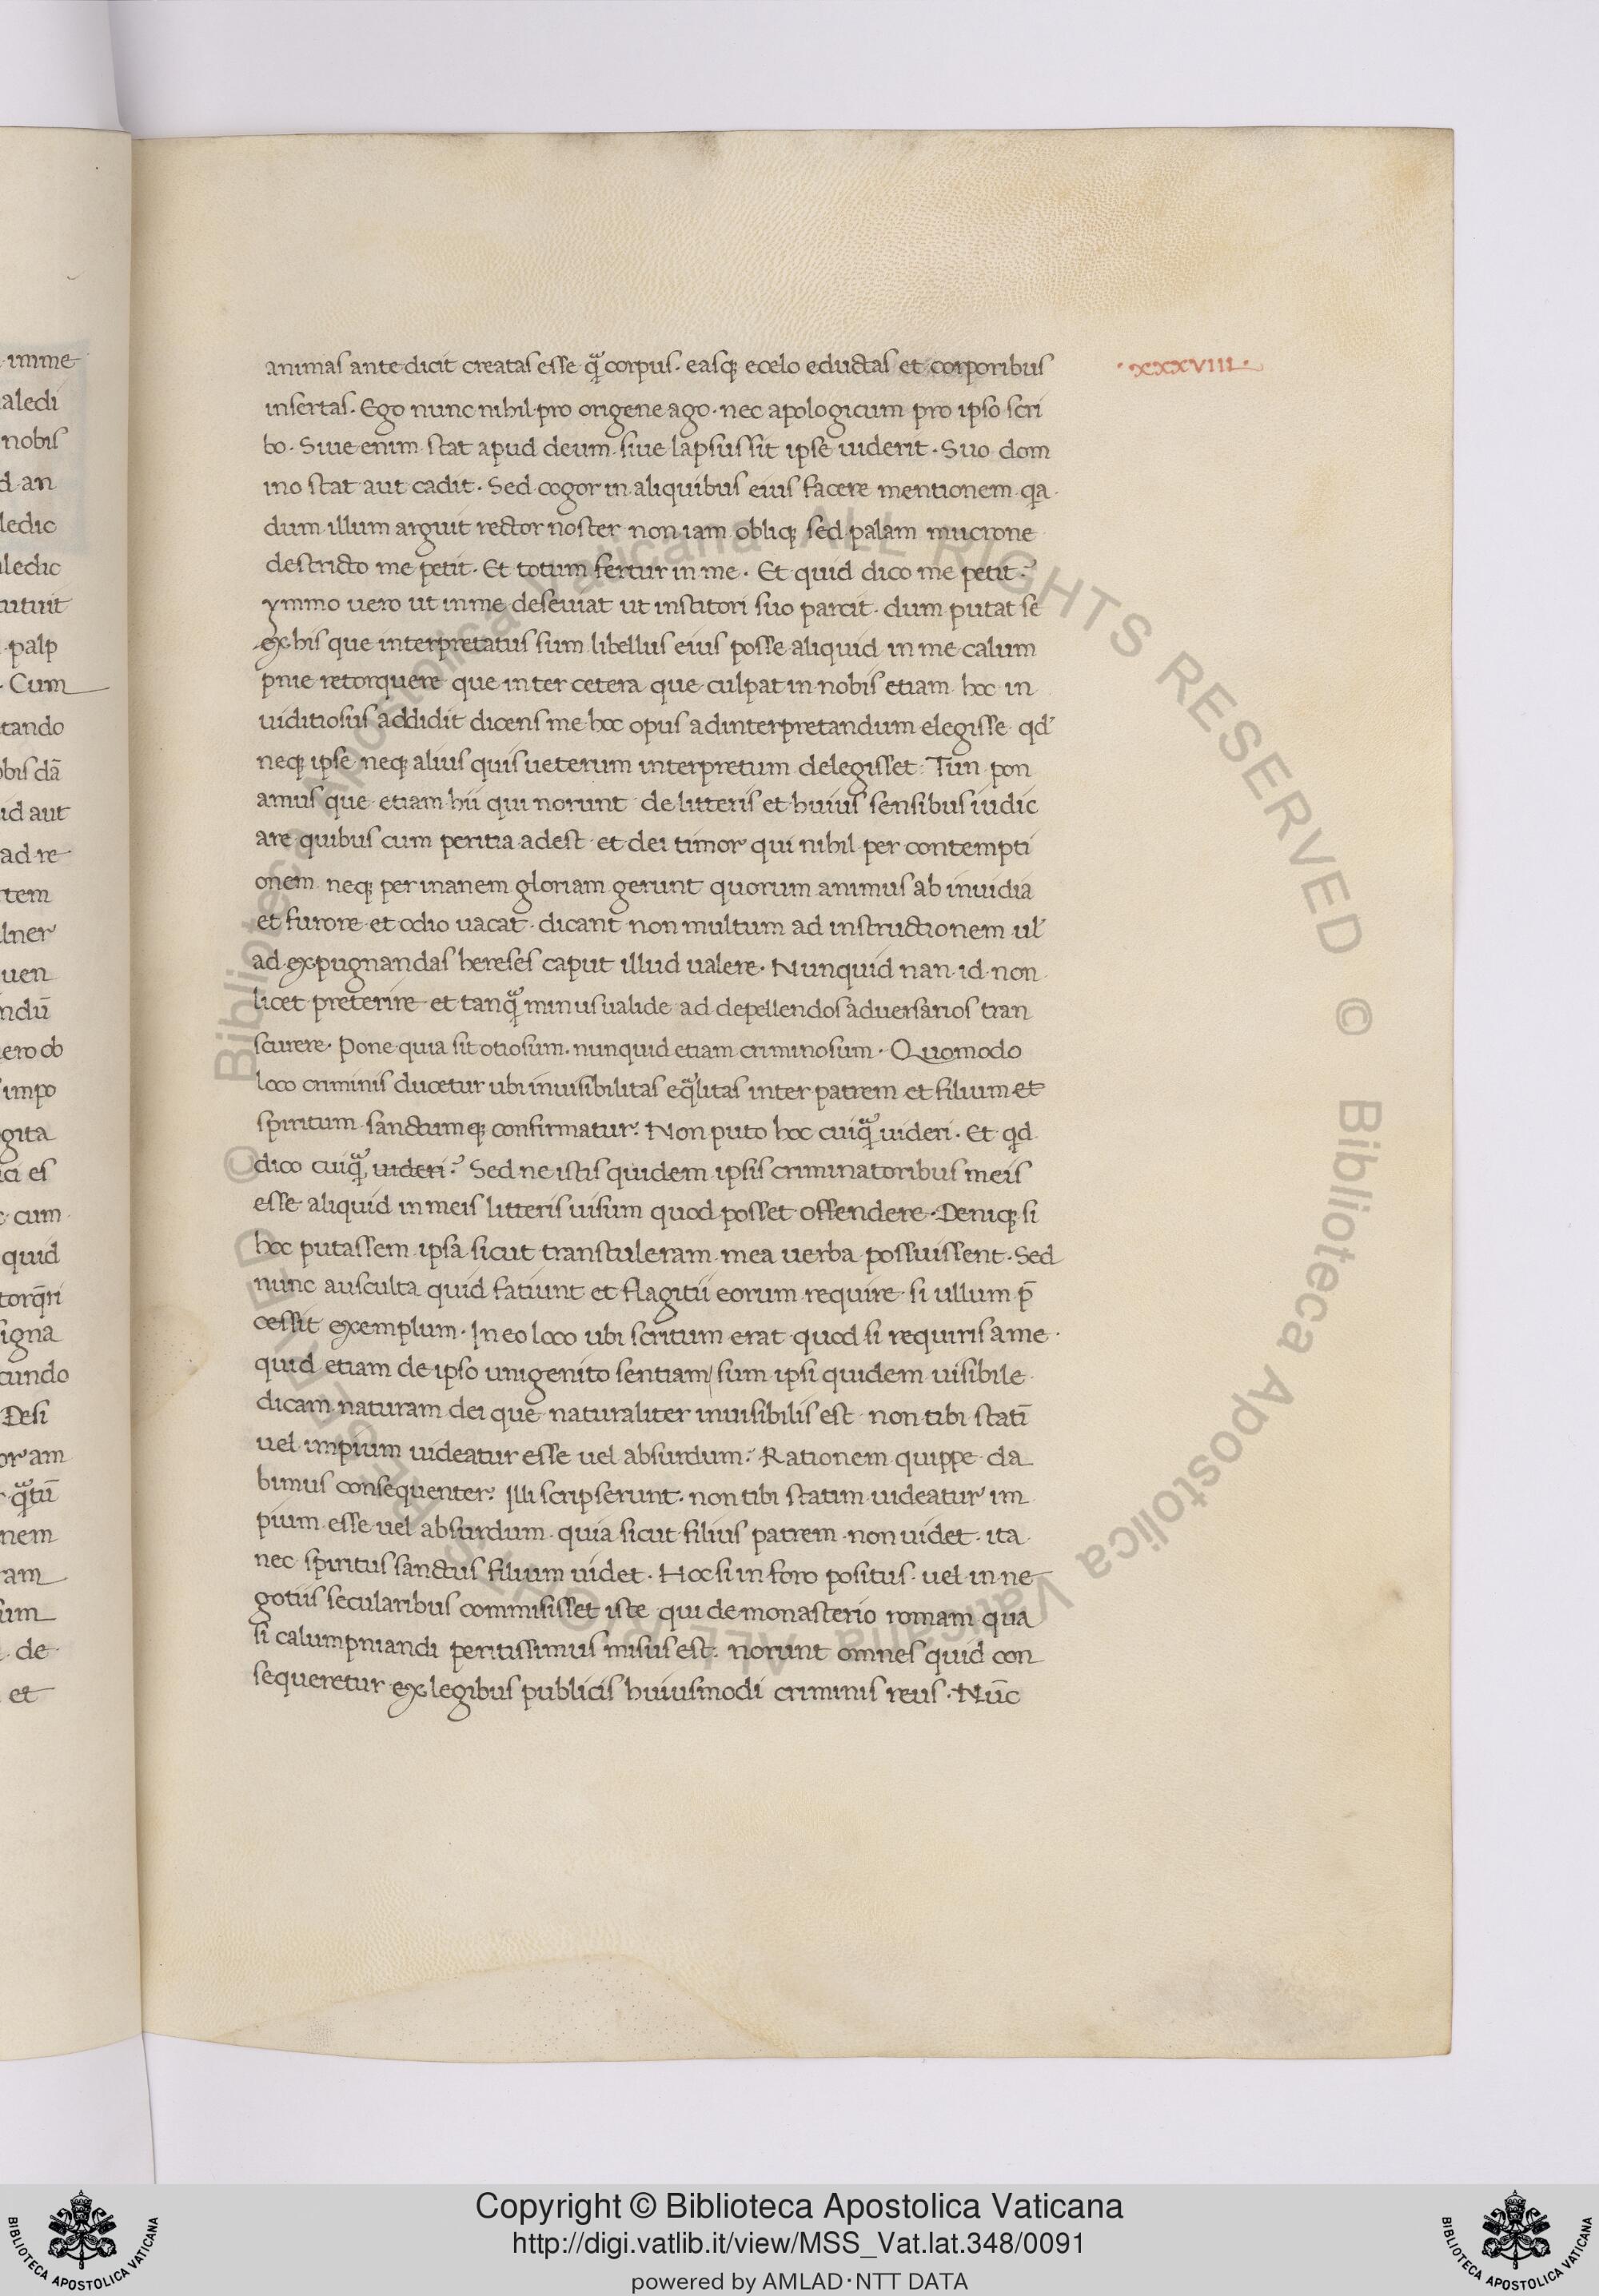 imme
aledi
nobis
d an
ledic
iledic
tutuit
palp
Cum
tando
obis dā
id aut
ad re
rtem
lner
uen
ndū
ero ob
impo
gita
ici es
cum
quid
torq̄ri
signa
cundo
Desi
or am
nem
ram
sum
de
et
animas ante dicit creatas esse qᷓ corpus. easqꝫ ecelo eductas et corporibus
·xxxviii·
insertas. Ego nunc nihil pro origene ago. nec apologicum pro ipso scri
bo. Siue enim stat apud deum. siue lapsus sit ipse uiderit. Suo dom
ino stat aut cadit. Sed cogor in aliquibus eius facere mentionem qa
dum illum arguit rector noster non iam obliqꝫ sed palam mucrone
destricto me petit. Et totum fertur in me. Et quid dico me petit?
ymmo uero ut in me deseuiat ut institori suo parcit. dum putat se
ex his que interpretatus sum libellus eius posse aliquid in me calum
pnie retorquere que inter cetera que culpat in nobis etiam hoc in
uiditiosius addidit dicens me hoc opus ad interpretandum elegisse qd'
neqꝫ ipse neqꝫ alius quis ueterum interpretum delegisset. Tun pon
amus que etiam hii qui norunt de litteris et huius sensibus iudic
are quibus cum peritia adest et dei timor qui nihil per contempti
onem neqꝫ per inanem gloriam gerunt quorum animus ab inuidia
et furore et odio uacat. dicant non multum ad instructionem ul'
ad expugnandas hereses caput illud ualere. Nunquid nan id non
licet preterire et tanqᷓ minus ualide ad depellendos aduersarios tran
scurere. Pone quia sit otiosum. nunquid etiam criminosum. Quomodo
loco criminis ducetur ubi inuisibilitas eqᷓlitas inter patrem et filium et
spiritum sanctumqꝫ confirmatur. Non puto hoc cuiqᷓ uideri. Et qd
dico cuiqᷓ uideri? Sed ne istis quidem ipsis criminatoribus meis
esse aliquid in meis litteris uisum quod posset offendere. Deniqꝫ si
hoc putassem ipsa sicut transtuleram mea uerba possuissent. Sed
nunc ausculta quid fatiunt et flagitii eorum require si ullum p̄
cessit exemplum. In eo loco ubi scritum erat quod si requiris a me
quid etiam de ipso unigenito sentiam/ sum ipsi quidem uisibile
dicam naturam dei que naturaliter inuisibilis est non tibi statī
uel impium uideatur esse uel absurdum. Rationem quippe da
bimus consequenter. Illi scripserunt. non tibi statim uideatur im
pium esse uel absurdum quia sicut filius patrem non uidet. ita
nec spiritus sanctus filium uidet. Hoc si in foro positus uel in ne
gotiis secularibus commisisset iste qui de monasterio romam qua
si calumpniandi peritissimus misus est. norunt omnes quid con
sequeretur ex legibus publicis huiusmodi criminis reus. Nūc
© Biblioteca Apostolica Vaticana ALL RIGHTS RESERVED © Biblioteca Apostolica Vaticana ALL RIGHTS RESERVED
BIBLIOTECA APOSTOLICA VATICANA
Copyright © Biblioteca Apostolica Vaticana
http://digi.vatlib.it/view/MSS_Vat.lat.348/0091
powered by AMLAD·NTT DATA
BIBLIOTECA APOSTOLICA VATICANA